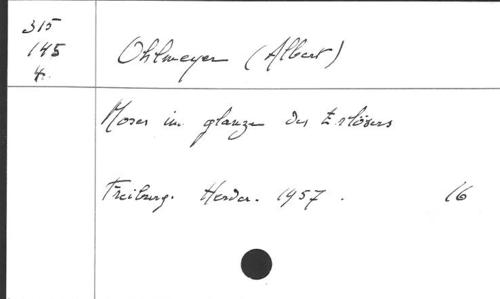 315
145
4.
Ohlmeyer (Albert)
Moses im glanze des Erlösers
Freiburg. Herder. 1957. 16